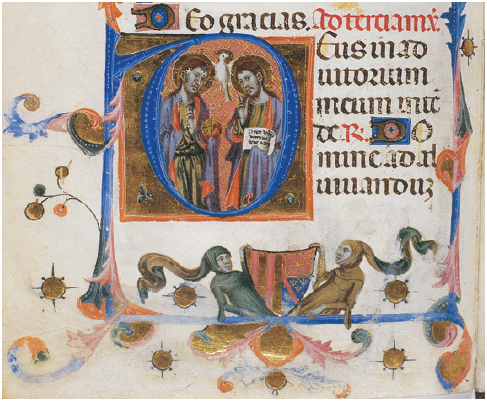 Deo gracias. Ad terciam. ℣.
Deus in ad
iutorium
meum intē
de. ℟. Do
mine ad ad
iuuanduꝫ